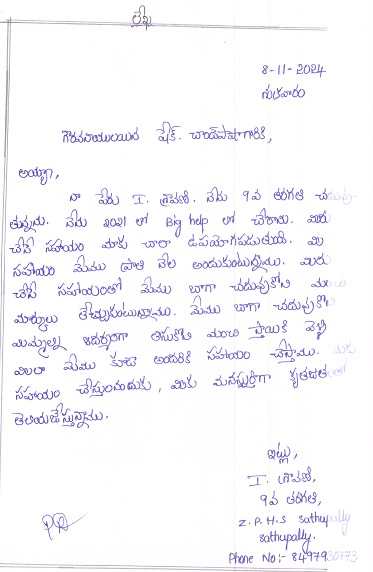 లేఖ
8-11-2024
శుక్రవారం
గౌరవనీయులయిన షేక్. చాంద్‌పాషాగారికి,
అయ్యా,
నా పేరు I. శ్రావణి. నేను 9వ తరగతి చదువు-
తున్నను. నేను 2021 లో Big help లో చేరాను. మీరు
చేసే సహాయం మాకు చాలా ఉపయోగపడుతుంది. మీ
సహాయం మేము ప్రతి నెల అందుకుంటున్నాము. మీరు
చేసే సహాయంతో మేము బాగా చదువుకొని మంచి
మార్కులు తెచ్చుకుంటున్నాము. మేము బాగా చదువుకొని
మిమ్మల్ని ఆదర్శంగా తీసుకొని మంచి స్థాయికి వెళ్లి
మీలా మేము కూడా అందరికి సహాయం చేస్తాము. మాకు
సహాయం చేస్తునందుకు, మీకు మనస్పూర్తిగా కృతజ్ఞతలతో
తెలియజేస్తున్నాము.
ఇట్లు,
I. శ్రావణి,
9వ తరగతి,
Z.P.H.S sathupally
sathupally.
Phone No:- 8497930173